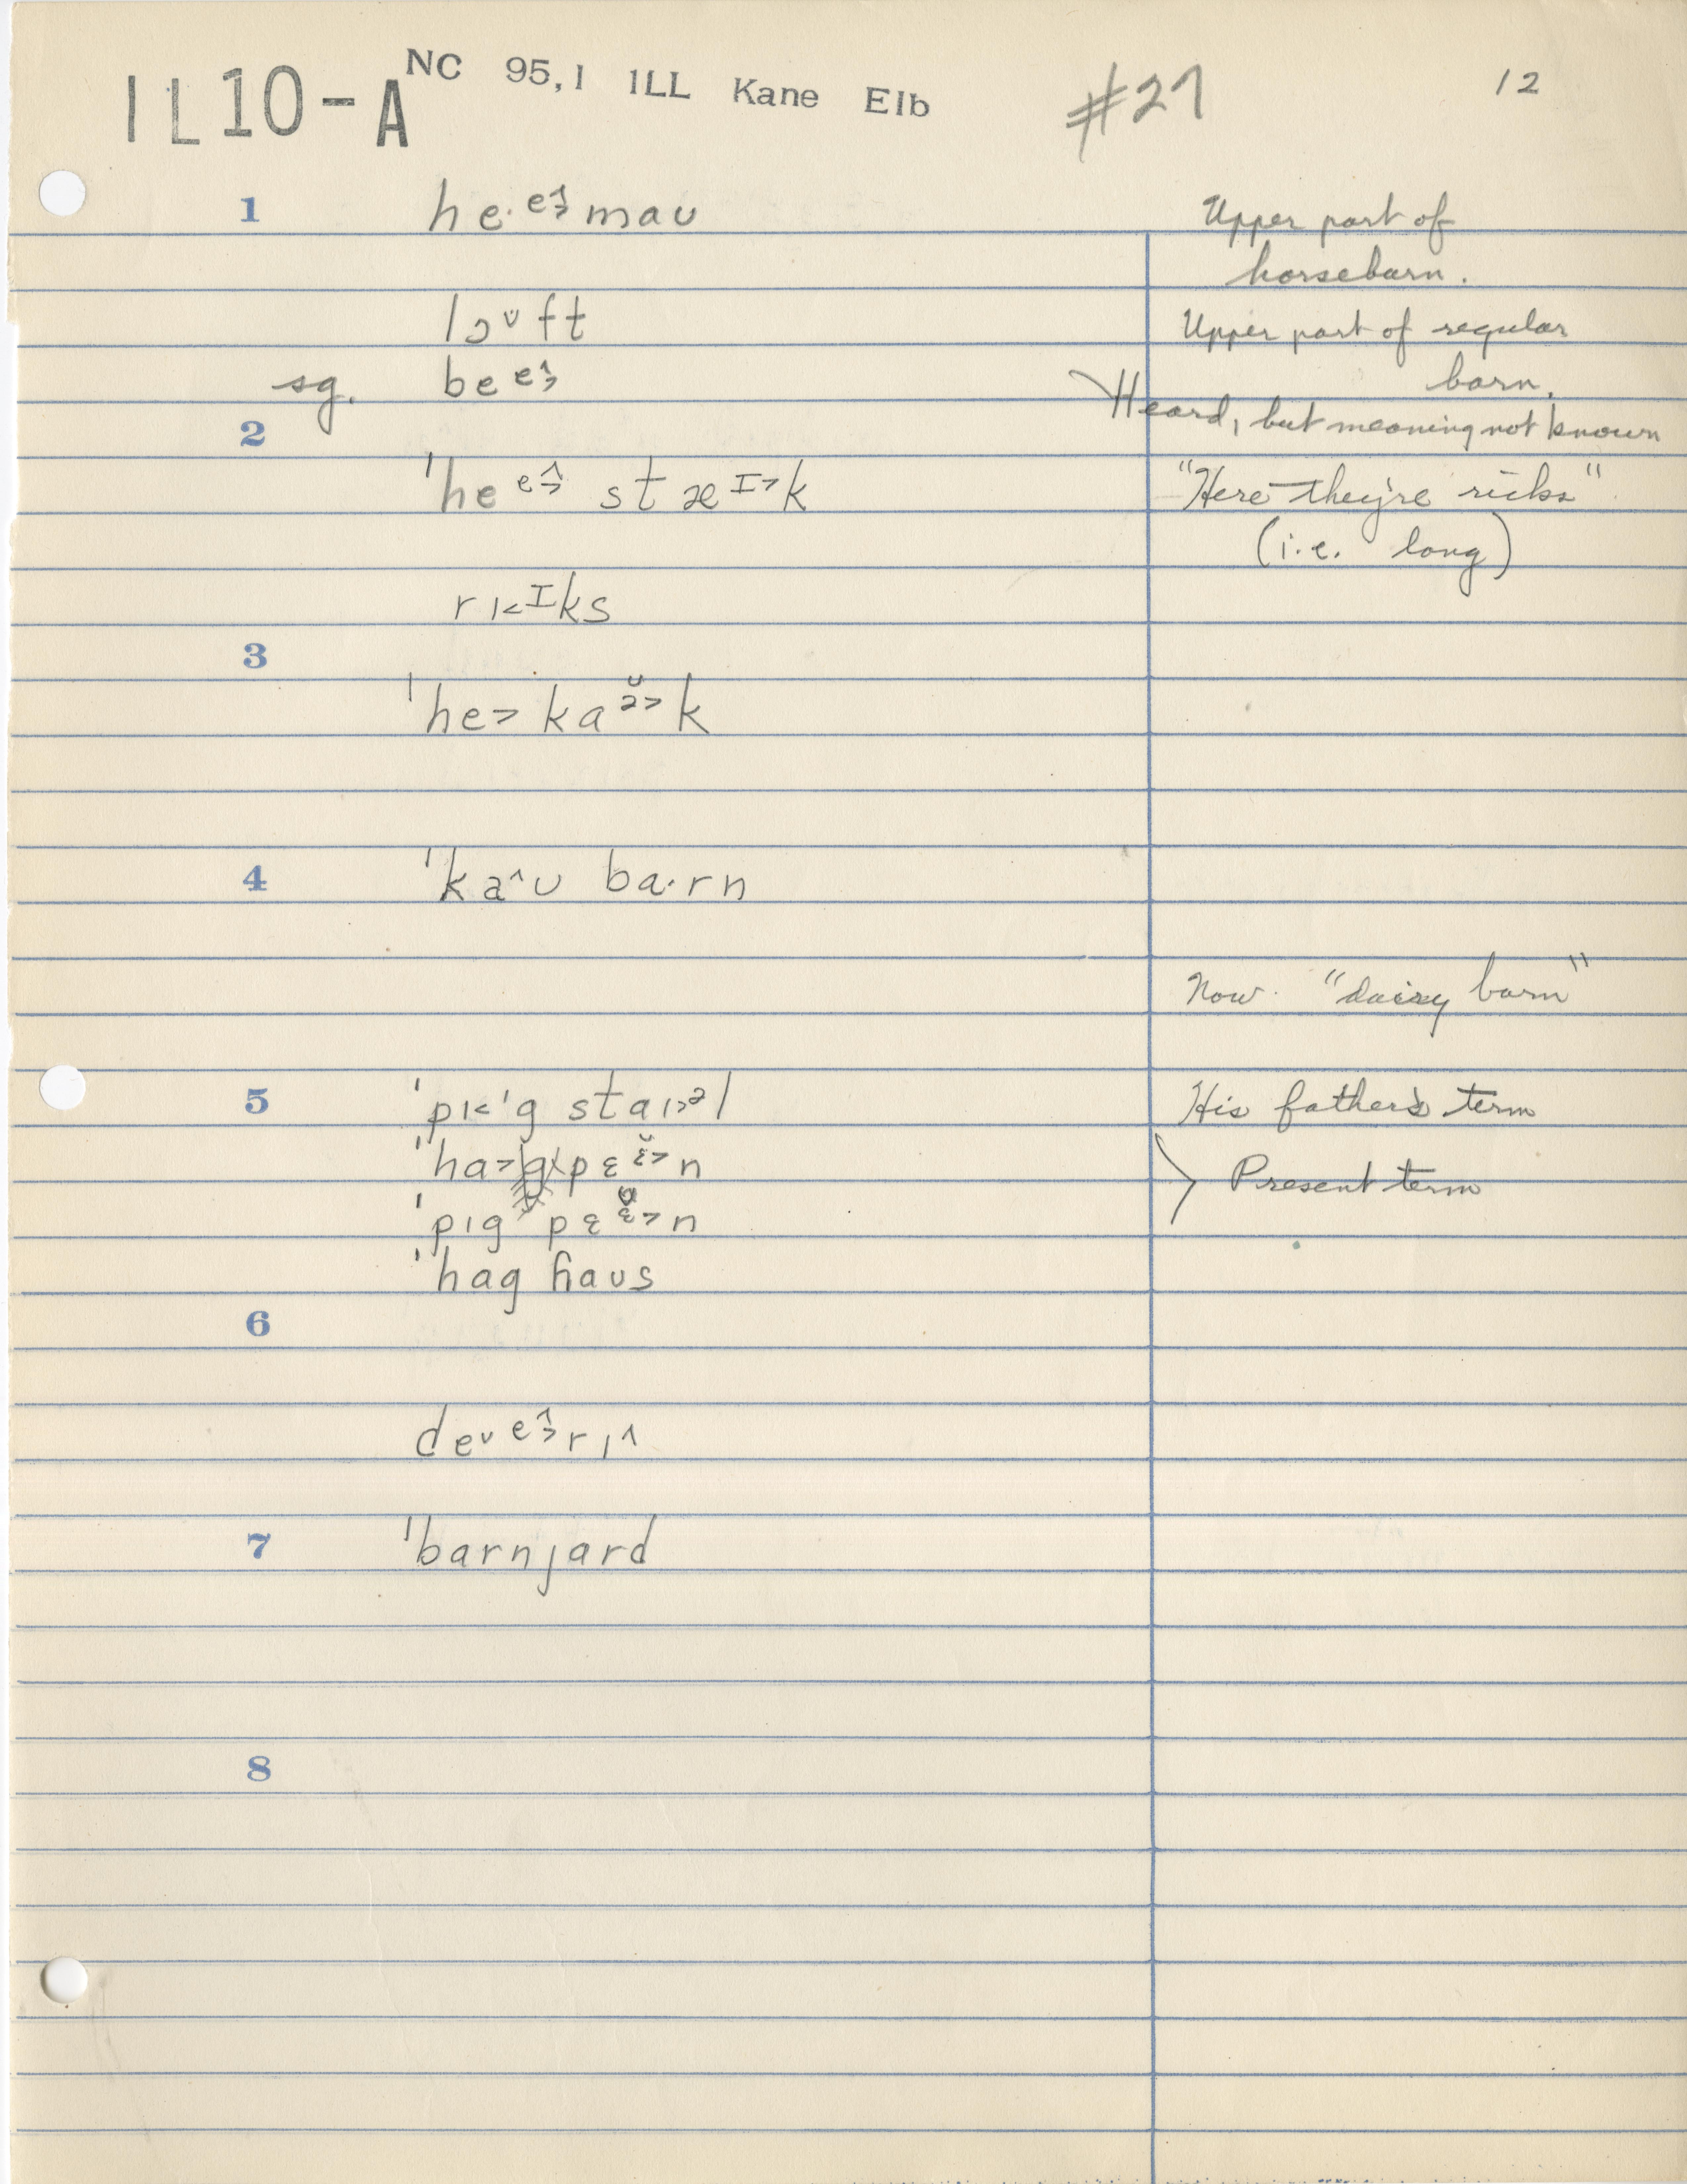 IL10-A NC 95,1 ILL Kane Elb #27 12
1 he·ᵉ˄˃maʊ Upper part of
horsebarn.
lɔᵛft Upper part of regular
sg. beᵉ˄˃ barn.
2 Heard, but meaning not known
ˈheᵉ˄˃ stæᴵ˃k "Here they're ricks"
(i.e. long)
rɪ˂ᴵks
3
ˈhe˃ kaᵊ̆˃k
4 ˈka˄ʊ ba·rn
Now "dairy barn"
5 ˈpɪ˂ˈg staɪ˃ᵊl His father's term
ˈha˃g pɛᵋ̆˃n Present term
ˈpɪg pɛᵋ̆˃n
ˈhag ɦaʊs
6
de˅ᵉ˄˃rɪ˄
7 ˈbarnjard
8